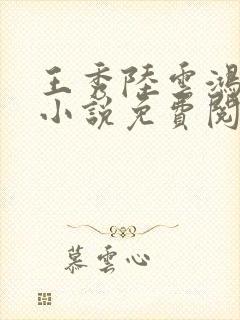 王秀陸雲鴻
小說免費閱
慕雲心